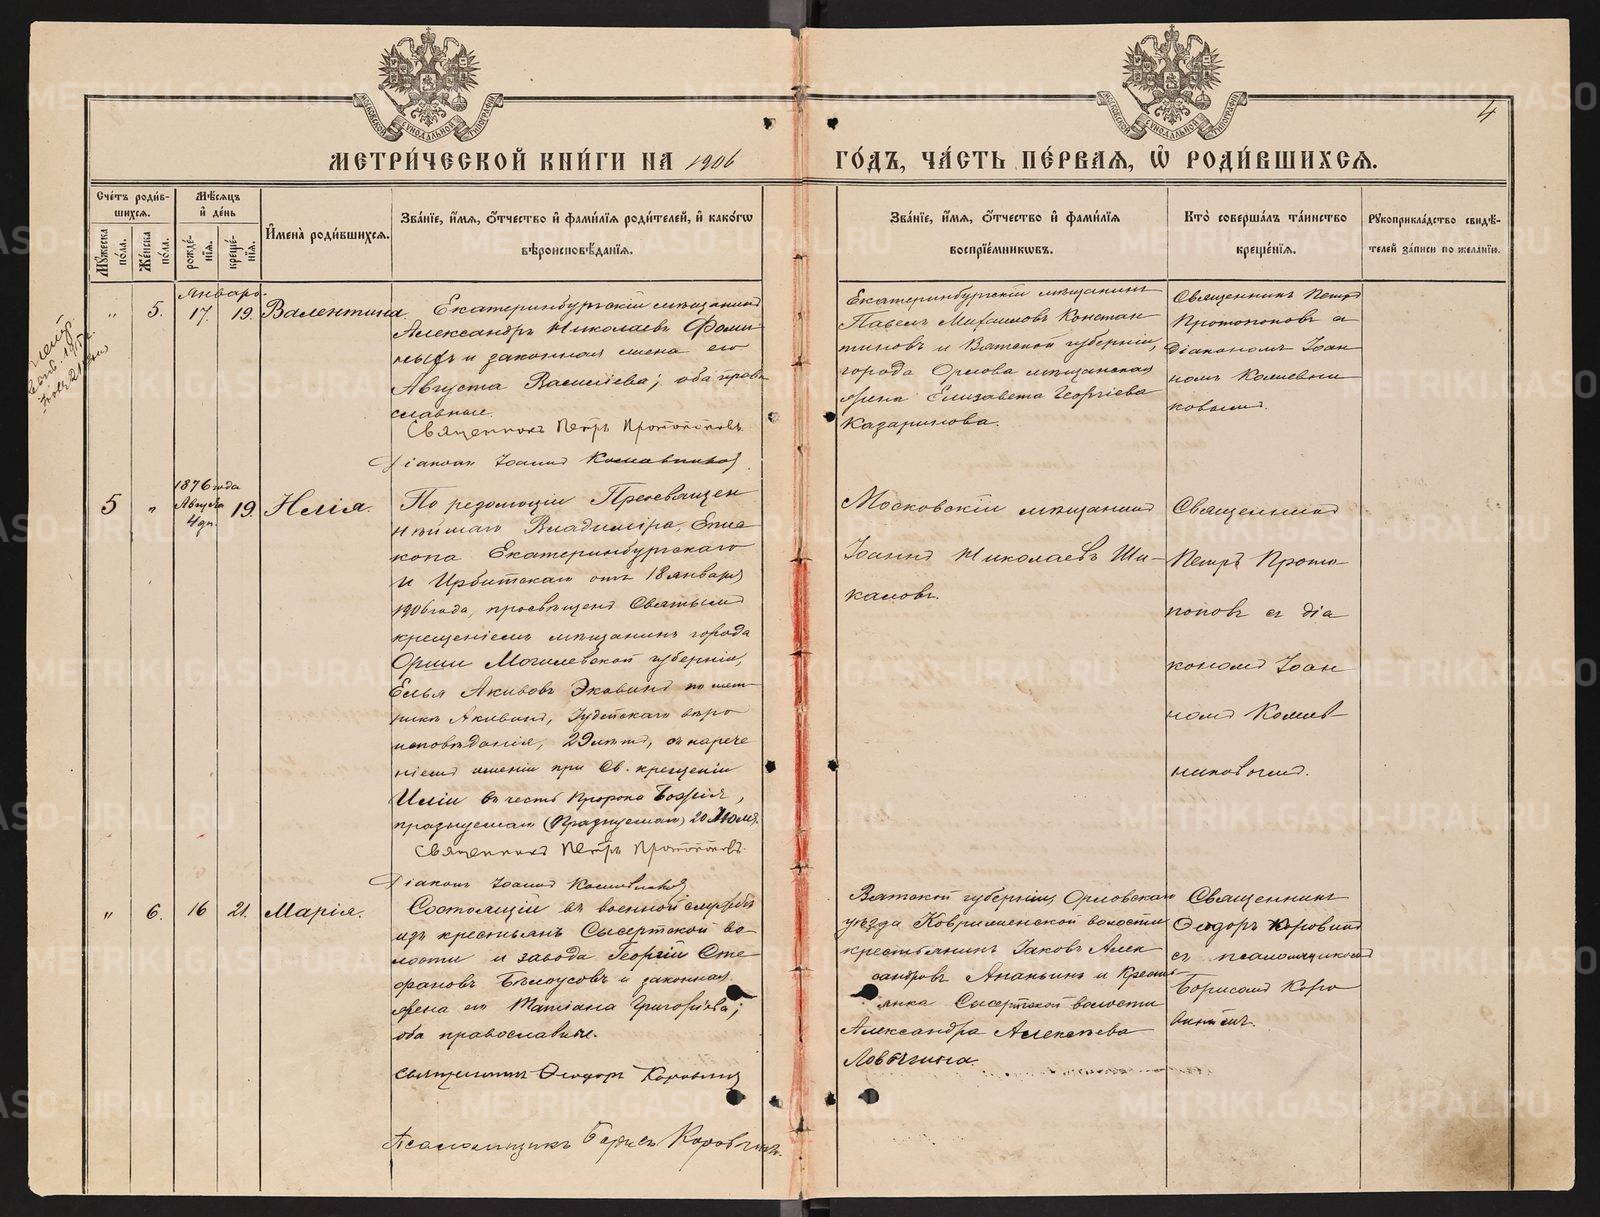 4
МЕТРИ́ЧЕСКОЙ КНИ́ГИ НА 1906
ГО́ДЪ, ЧА́СТЬ ПЕ́РВАѦ, Ѿ РОДИ́ВШИХСѦ.
Сче́тъ роди́в-
шихсѧ.
Мꙋ́жеска по́ла.
Же́нска по́ла.
Мѣ́сѧцъ
и҆ де́нь
рожде́-
нїѧ.
креще́-
нїѧ.
И҆мена̀ роди́вшихсѧ.
Зва́нїе, и҆́мѧ, ѻ҆́тчество и҆ фами́лїѧ роди́телей, и҆ како́гѡ
вѣроисповѣ́данїѧ.
Зва́нїе, и҆́мѧ, ѻ҆́тчество и҆ фами́лїѧ
воспрїе́мниковъ.
Кто̀ соверша́лъ та́инство
креще́нїѧ.
Рꙋкоприкла́дство свидѣ́-
телей за́писи по жела́нїю.
Январь
"
5.
17.
19.
Валентина.
Екатеринбургскій мѣщанинъ
Александръ Николаевъ Фоми-
ныхъ и законная жена его
Августа Васильева; оба право
славные.
Священникъ Петръ Протопоповъ
Діаконъ Іоаннъ
Екатеринбургскій мѣщанинъ
Павелъ Михаиловъ Констан
тиновъ и Вятской губерніи,
города Орлова мѣщанская
жена Елизавета Георгіева
Казаринова.
Священникъ Петръ
Протопоповъ съ
діакономъ Іоан
номъ
ковымъ.
5
"
1876 года
Августа
4 дн.
19.
Илія.
По резолюціи Преосвящен
нѣйшаго Владиміра, Епис
копа Екатеринбургскаго
и Ирбитскаго отъ 18 января
1906 года, просвѣщенъ Святымъ
крещеніемъ мѣщанинъ города
Орши Могилевской губерніи,
Елья Акивовъ по мет
рикѣ Акивинъ, Іудейскаго вѣро
исповѣданія, 29 лѣтъ, съ нарече
ніемъ имени при Св. крещеніи
Иліи въ честь Пророка Божія,
празднуемаго (Празднуемаго) 20 Іюля.
Священникъ Петръ Протопоповъ
Діаконъ Іоаннъ
Московскій мѣщанинъ
Іоаннъ Николаевъ Ши-
каловъ.
Священникъ
Петръ Прото
поповъ съ діа
кономъ Іоан
номъ
никовымъ.
"
6.
16
21.
Марія.
Состоящій въ военной службѣ
изъ крестьянъ Сысертской во-
лости и завода Георгій Сте-
фановъ Бѣлоусовъ и законная
жена его Татіана Григорьева;
оба православные.
Священникъ Ѳеодоръ Коровинъ
Псаломщикъ Борисъ Коровинъ.
Вятской губерніи Орловскаго
уѣзда волости
крестьянинъ Іаковъ Алек
сандровъ Ананьинъ и Кресть-
янка Сысертской волости
Александра Алексѣева
Ловыгина.
Священникъ
Ѳеодоръ Коровинъ
съ псаломщикомъ
Борисомъ Коро
винымъ.